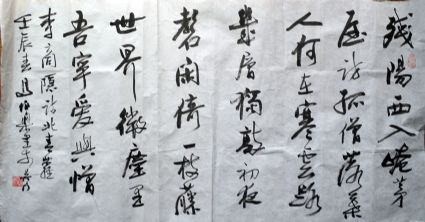 殘陽西入崦茅
屋訪孤僧落葉
人何在寒雲路
幾層獨敲初夜
磬閑倚一枝藤
世界微塵里
吾寧愛與憎
李商隱詩北青蘿
壬辰春